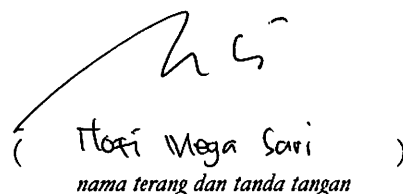 ( Mega Sari )
nama terang dan tanda tangan